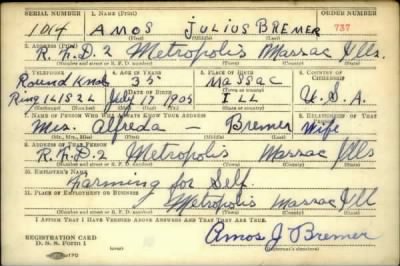 SERIAL NUMBER 1. NAME (Print) ORDER NUMBER
104 AMOS JULIUS BREMER 737
(First) (Middle) (Last)
2. ADDRESS (Print)
R.F.D.2 Metropolis Massac Ills.
(Number and street or R. F. D. number) (Town) (County) (State)
3. TELEPHONE 4. AGE IN YEARS 5. PLACE OF BIRTH 6. COUNTRY OF CITIZENSHIP
Round Knob 35 Massac
DATE OF BIRTH
July 17 1905 ILL U.S.A.
(Mo.) (Day) (Yr.) (State or country)
7. NAME OF PERSON WHO WILL ALWAYS KNOW YOUR ADDRESS 8. RELATIONSHIP OF THAT PERSON
Mrs. Alfreda — Bremer Wife
(Mr., Mrs., Miss) (First) (Middle) (Last)
9. ADDRESS OF THAT PERSON
R.F.D.2 Metropolis Massac Ills
(Number and street or R. F. D. number) (Town) (County) (State)
10. EMPLOYER'S NAME
Farming for Self.
11. PLACE OF EMPLOYMENT OR BUSINESS
Metropolis Massac Ill
(Number and street or R. F. D. number) (Town) (County) (State)
I AFFIRM THAT I HAVE VERIFIED ABOVE ANSWERS AND THAT THEY ARE TRUE.
REGISTRATION CARD
D. S. S. Form 1 Amos J Bremer
(over) (Registrant's signature)